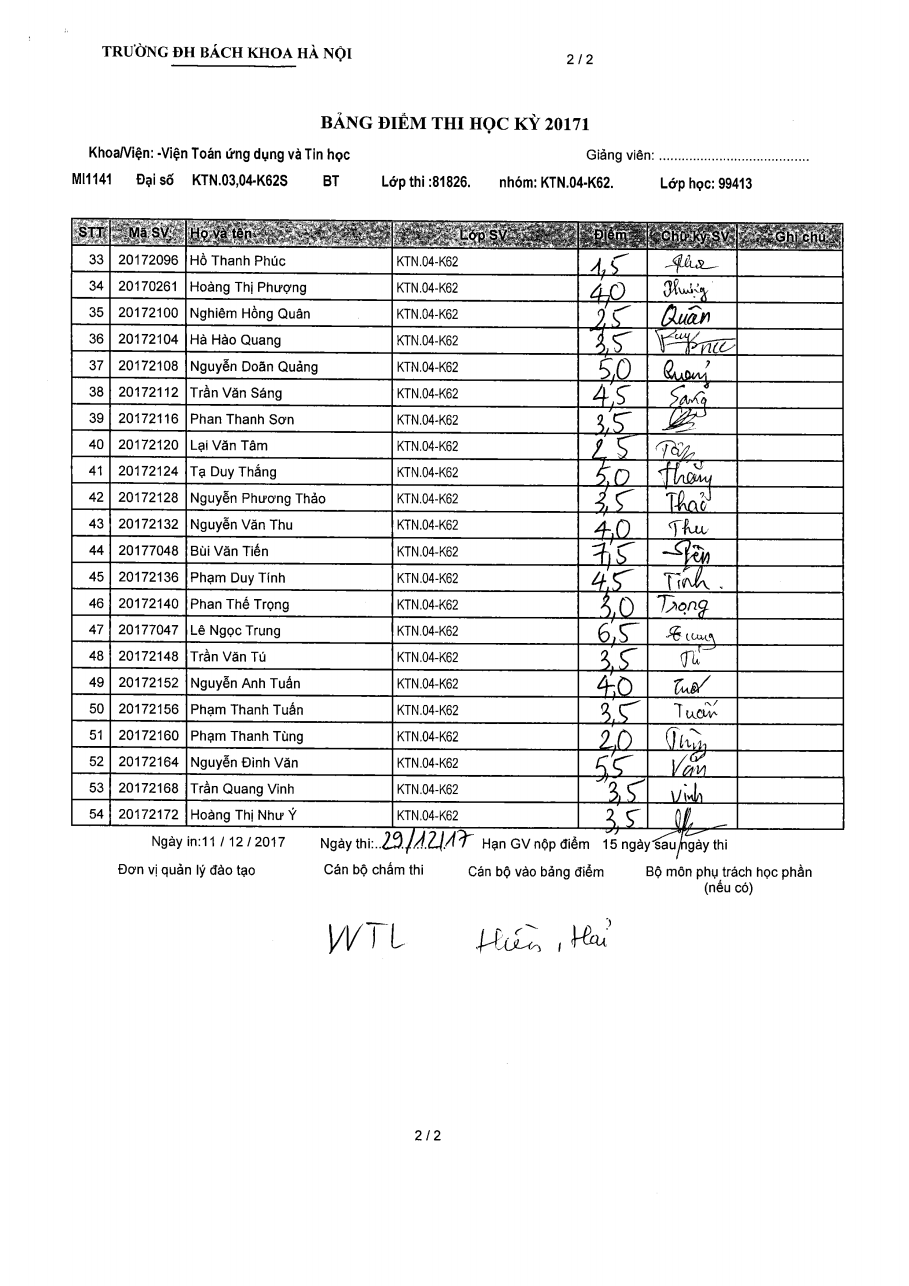 TRƯỜNG ĐH BÁCH KHOA HÀ NỘI
2 / 2
BẢNG ĐIỂM THI HỌC KỲ 20171
Khoa/Viện: -Viện Toán ứng dụng và Tin học Giảng viên: ........................................
MI1141 Đại số KTN.03,04-K62S BT Lớp thi :81826. nhóm: KTN.04-K62. Lớp học: 99413
STT Mã SV Họ và tên Lớp SV Điểm Chữ ký SV Ghi chú
33 20172096 Hồ Thanh Phúc KTN.04-K62 1,5
34 20170261 Hoàng Thị Phượng KTN.04-K62 4,0 Phượng
35 20172100 Nghiêm Hồng Quân KTN.04-K62 2,5 Quân
36 20172104 Hà Hào Quang KTN.04-K62 3,5
37 20172108 Nguyễn Doãn Quảng KTN.04-K62 5,0 Quảng
38 20172112 Trần Văn Sáng KTN.04-K62 4,5 Sáng
39 20172116 Phan Thanh Sơn KTN.04-K62 3,5
40 20172120 Lại Văn Tâm KTN.04-K62 2,5 Tâm
41 20172124 Tạ Duy Thắng KTN.04-K62 5,0 Thắng
42 20172128 Nguyễn Phương Thảo KTN.04-K62 3,5 Thảo
43 20172132 Nguyễn Văn Thu KTN.04-K62 4,0 Thu
44 20177048 Bùi Văn Tiến KTN.04-K62 7,5 Tiến
45 20172136 Phạm Duy Tính KTN.04-K62 4,5 Tính .
46 20172140 Phan Thế Trọng KTN.04-K62 3,0 Trọng
47 20177047 Lê Ngọc Trung KTN.04-K62 6,5 Trung
48 20172148 Trần Văn Tú KTN.04-K62 3,5 Tú
49 20172152 Nguyễn Anh Tuấn KTN.04-K62 4,0
50 20172156 Phạm Thanh Tuấn KTN.04-K62 3,5 Tuấn
51 20172160 Phạm Thanh Tùng KTN.04-K62 2,0 Tùng
52 20172164 Nguyễn Đình Văn KTN.04-K62 5,5 Văn
53 20172168 Trần Quang Vinh KTN.04-K62 3,5 Vinh
54 20172172 Hoàng Thị Như Ý KTN.04-K62 3,5
Ngày in:11 / 12 / 2017 Ngày thi:..29/12/17 Hạn GV nộp điểm 15 ngày sau ngày thi
Đơn vị quản lý đào tạo Cán bộ chấm thi Cán bộ vào bảng điểm Bộ môn phụ trách học phần
(nếu có)
WTL Hiền, Hải
2 / 2